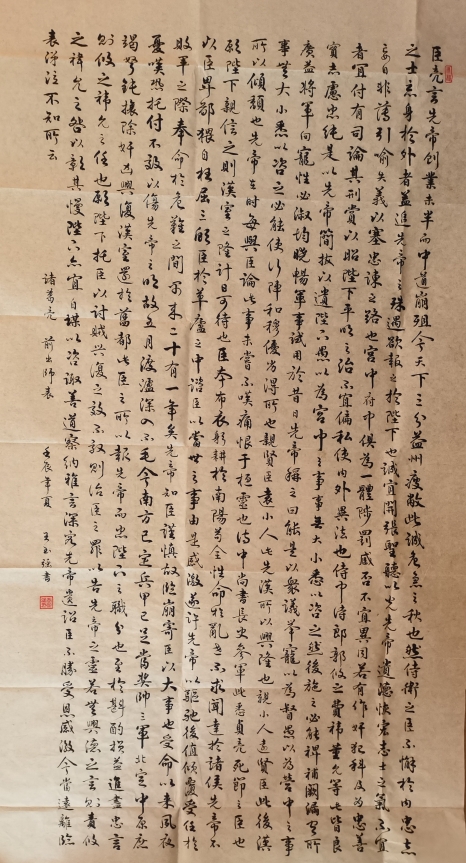 臣亮言先帝創業未半而中道崩殂今天下三分益州疲敝此誠危急之秋也然侍衛之臣不懈於內忠志
之士忘身於外者蓋追先帝之殊遇欲報之於陛下也誠宜開張聖聽以光先帝遺德恢宏志士之氣不宜
妄自菲薄引喻失義以塞忠諫之路也宮中府中俱為一體陟罰臧否不宜異同若有作奸犯科及為忠善
者宜付有司論其刑賞以昭陛下平明之治不宜偏私使內外異法也侍中侍郎郭攸之費禕董允等此皆良
實志慮忠純是以先帝簡拔以遺陛下愚以為宮中之事事無大小悉以咨之然後施之必能裨補闕漏有所
廣益將軍向寵性行淑均曉暢軍事試用於昔日先帝稱之曰能是以眾議舉寵以為督愚以為營中之事
事無大小悉以咨之必能使行陣和穆優劣得所也親賢臣遠小人此先漢所以興隆也親小人遠賢臣此後漢
所以傾頹也先帝在時每與臣論此事未嘗不嘆痛恨於桓靈也侍中尚書長史參軍此悉貞亮死節之臣也
願陛下親信之則漢室之隆計日可待也臣本布衣躬耕於南陽苟全性命於亂世不求聞達於諸侯先帝不
以臣卑鄙猥自枉屈三顧臣於草廬之中諮臣以當世之事由是感激遂許先帝以驅馳後值傾覆受任於
敗軍之際奉命於危難之間爾來二十有一年矣先帝知臣謹慎故臨崩寄臣以大事也受命以來夙夜
憂嘆恐托付不效以傷先帝之明故五月渡瀘深入不毛今南方已定兵甲已足當獎帥三軍北定中原庶
竭駑鈍攘除奸凶興復漢室還於舊都此臣之所以報先帝而忠陛下之職分也至於斟酌損益進盡忠言
則攸之禕允之任也願陛下托臣以討賊興復之效不效則治臣之罪以告先帝之靈若無興德之言則責攸
之禕允之咎以彰其慢陛下亦宜自謀以咨諏善道察納雅言深追先帝遺詔臣不勝受恩感激今當遠離臨
表涕泣不知所云
諸葛亮 前出師表 壬辰年夏 王玉 書